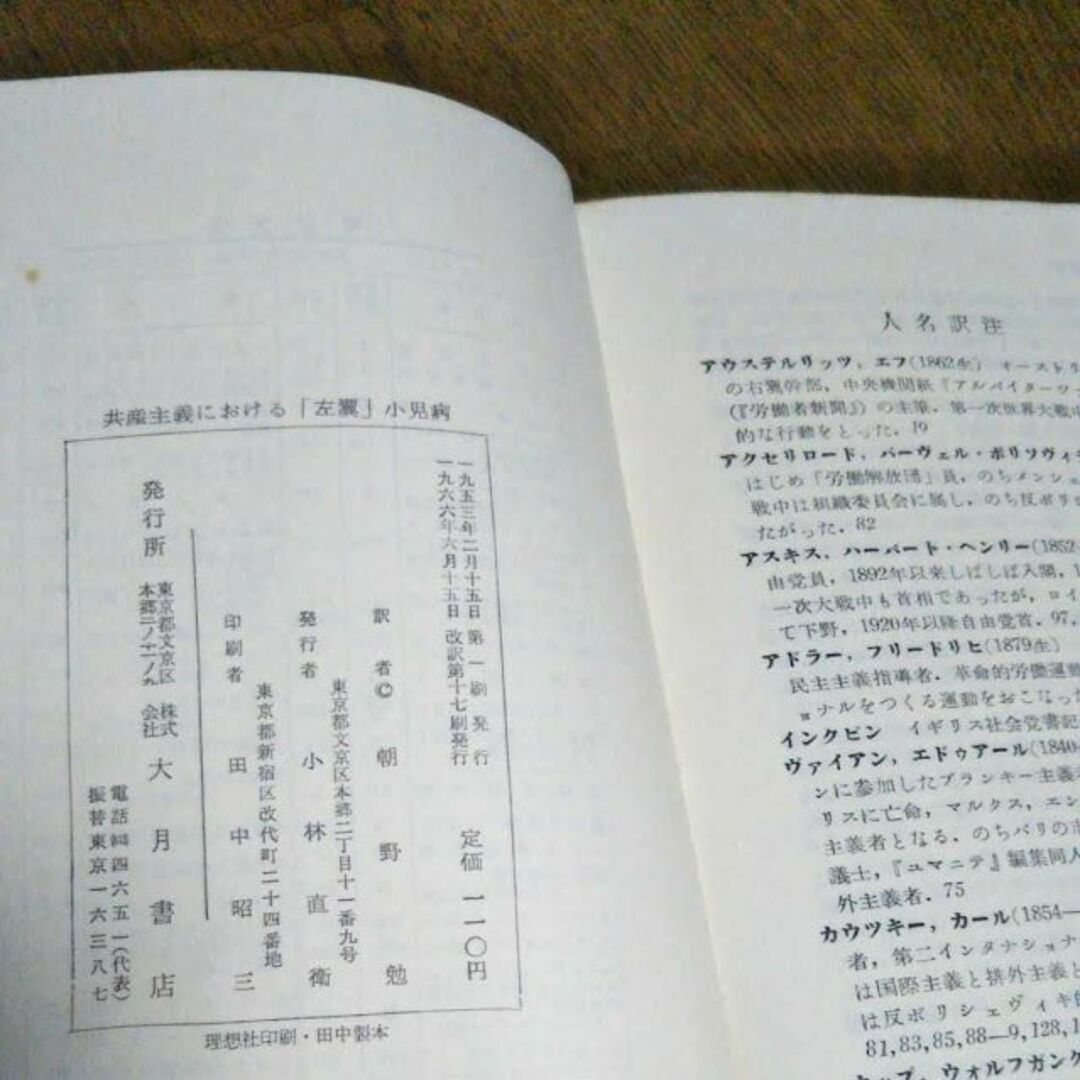 共産主義における「左翼」小児病
一九五三年二月十五日 第一刷発行
一九六六年六月十五日 改訳第十七刷発行
定価 一一〇円
訳者© 朝野勉
発行者 小林直衛
東京都文京区本郷二丁目十一番九号
印刷者 田中昭三
東京都新宿区改代町二十四番地
発行所
東京都文京区
本郷二ノ十一ノ九
株式会社 大月書店
電話 四六五一(代表)
振替東京一六三八七
理想社印刷・田中製本
人名訳注
アウステルリッツ,エフ(1862生) オーストリ
の右翼幹部,中央機関紙『アルバイターツ
(『労働者新聞』)の主筆.第一次世界大戦中
的な行動をとった.19
アクセリロード,パーヴェル・ボリソヴィ
はじめ「労働解放団」員,のちメンシェ
戦中は組織委員会に属し,のち反ボリ
たがった.82
アスキス,ハーバート・ヘンリー(1852
由党員,1892年以来しばしば入閣,1
一次大戦中も首相であったが,ロイ
て下野,1920年以降自由党首.97,
アドラー,フリードリヒ(1879生)
民主主義指導者.革命的労働運動
ョナルをつくる運動をおこなった
インクピン イギリス社会党書記
ヴァイアン,エドゥアール(1840-
ンに参加したブランキー主義
リスに亡命,マルクス,エン
主義者となる.のちパリの
議士,『ユマニテ』編集同人
外主義者.75
カウツキー,カール(1854—
者,第二インタナショナ
は国際主義と排外主義と
は反ボリシェヴィキ的
81,83,85,88—9,128,1
カップ,ウォルフガング